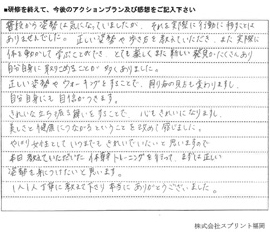 ■研修を終えて、今後のアクションプラン及び感想をご記入下さい
普段から姿勢は気になっていましたが、それを実際に行動に移すことは
ありませんでした。正しい姿勢や歩き方を教えていただき、また実際に
体を動かして学ぶことができ、とても楽しくまた新しい発見がたくさんあり
自分自身に取り入れることが多くありました。
正しい姿勢やウォーキングをすることで、周りの見る目も変わりますし、
自分自身にも自信がつきます。
きれいな立ち振る舞いをすることで、心もきれいになりますし、
美しさと健康につながるということを改めて感じました。
やはり女性としていつまでもきれいでいたいと思いますので
本日教えていただいた体幹トレーニングをするって、まずは正しい
姿勢を身につけたいと思います。
1人1人丁寧に教えて下さり本当にありがとうございました。
株式会社スプリント福岡